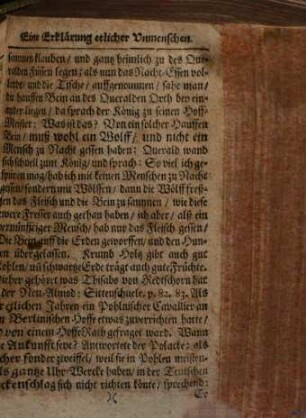 Ein Erklärung etlicher Vnmenschen.
samen klauben/ und gantz heimlich zu des Que-
ralden Füssen legen; als nun das Nacht-Essen vol-
und die Tische/ auffgenommen/ sahe man/
hauffen Bein an des Queralden Orth bey ein-
ligen/ da sprach der König zu seinen Hoff-
Meister: Was ist das? Von ein solcher Hauffen
Bein/ muß wohl ein Wolff/ und nicht ein
Mensch zu Nacht gessen haben: Querald wand
schnell zum König/ und sprach: So viel ich ge-
mag/ hab ich mit keinen Menschen zu Nacht
sondern mit Wölffen/ dann die Wölff fres-
das Fleisch und die Bein zu samen/ wie diese
Fresser auch gethan haben/ ich aber/ als ein
vernünftiger Mensch/ hab nur das Fleisch gessen/
die Bein auff die Erden geworffen/ und den Hun-
übergelassen. Krumb Holtz gibt auch gut
Kohlen/ uñ schwartze Erde trägt auch gute Früchte.
gehöret was Thisabo von
der Neu-Almod: Sittenschuele. p. 82. 83. Als
etlichen Jahren ein Pohlnischer Cavallier am
Berlinischen Hoffe etwas zuverrichten hatte/
von einem Hoffe Rath gefraget ward. Wann
Ankunfft sey? Antwortet der Polacke: als
sonder zweiffel/ weil sie in Pohlen meisten-
gantze Uhr-Wercke haben/ in der Teutschen
sich nicht richten könte/ sprechend: